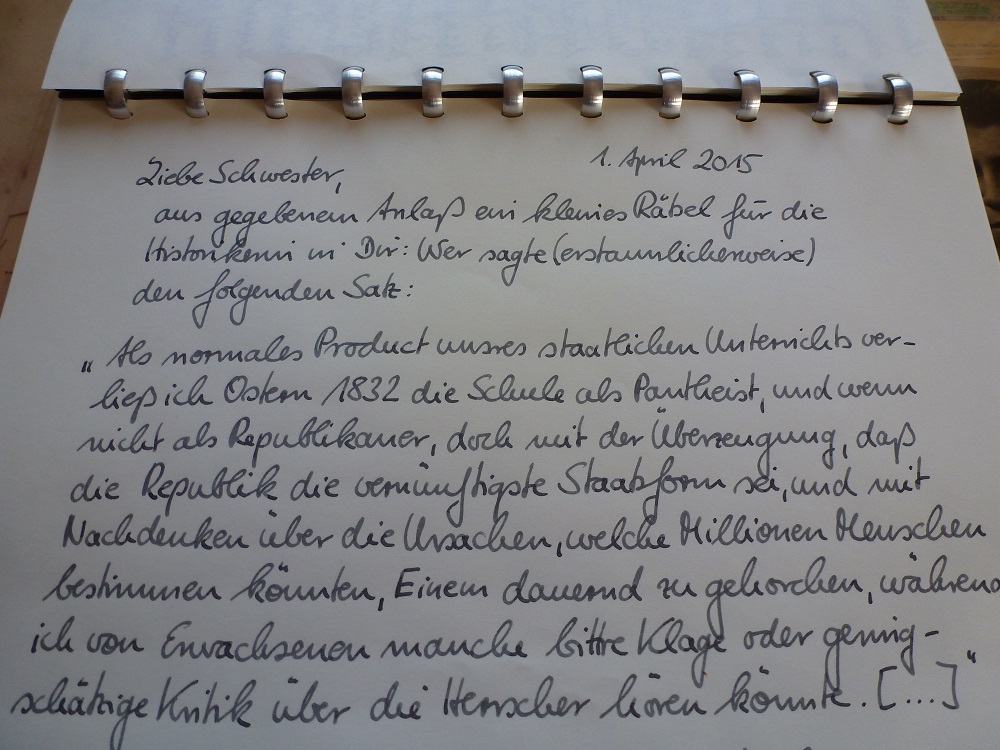 1. April 2015
Liebe Schwester,
aus gegebenem Anlaß ein kleines Rätsel für die
Historikerin in Dir: Wer sagte (erstaunlicherweise)
den folgenden Satz:
„Als normales Product unsres staatlichen Unterrichts ver-
ließ ich Ostern 1832 die Schule als Pantheist, und wenn
nicht als Republikaner, doch mit der Überzeugung, daß
die Republik die vernünftigste Staatsform sei, und mit
Nachdenken über die Ursachen, welche Millionen Menschen
bestimmen könnten, Einem dauernd zu gehorchen, während
ich von Erwachsenen manche bittre Klage oder gering-
schätzige Kritik über die Herrscher hören könnte. [...]"